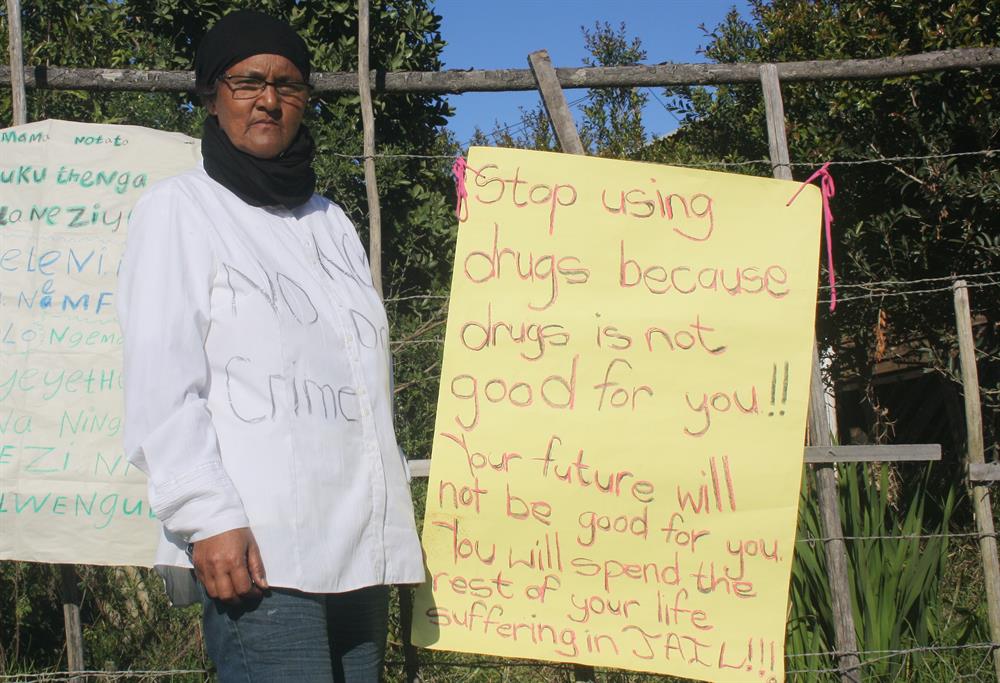 Mama Notata
uku thenga
Neziy
eleNi
Ningem
yeyetho
Na Ning
EZI Ni
LWENgU
No
Crime
No
Do
Stop using
drugs because
drugs is not
good for you!!
Your future will
not be good for you.
You will spend the
rest of your life
suffering in JAIL!!!